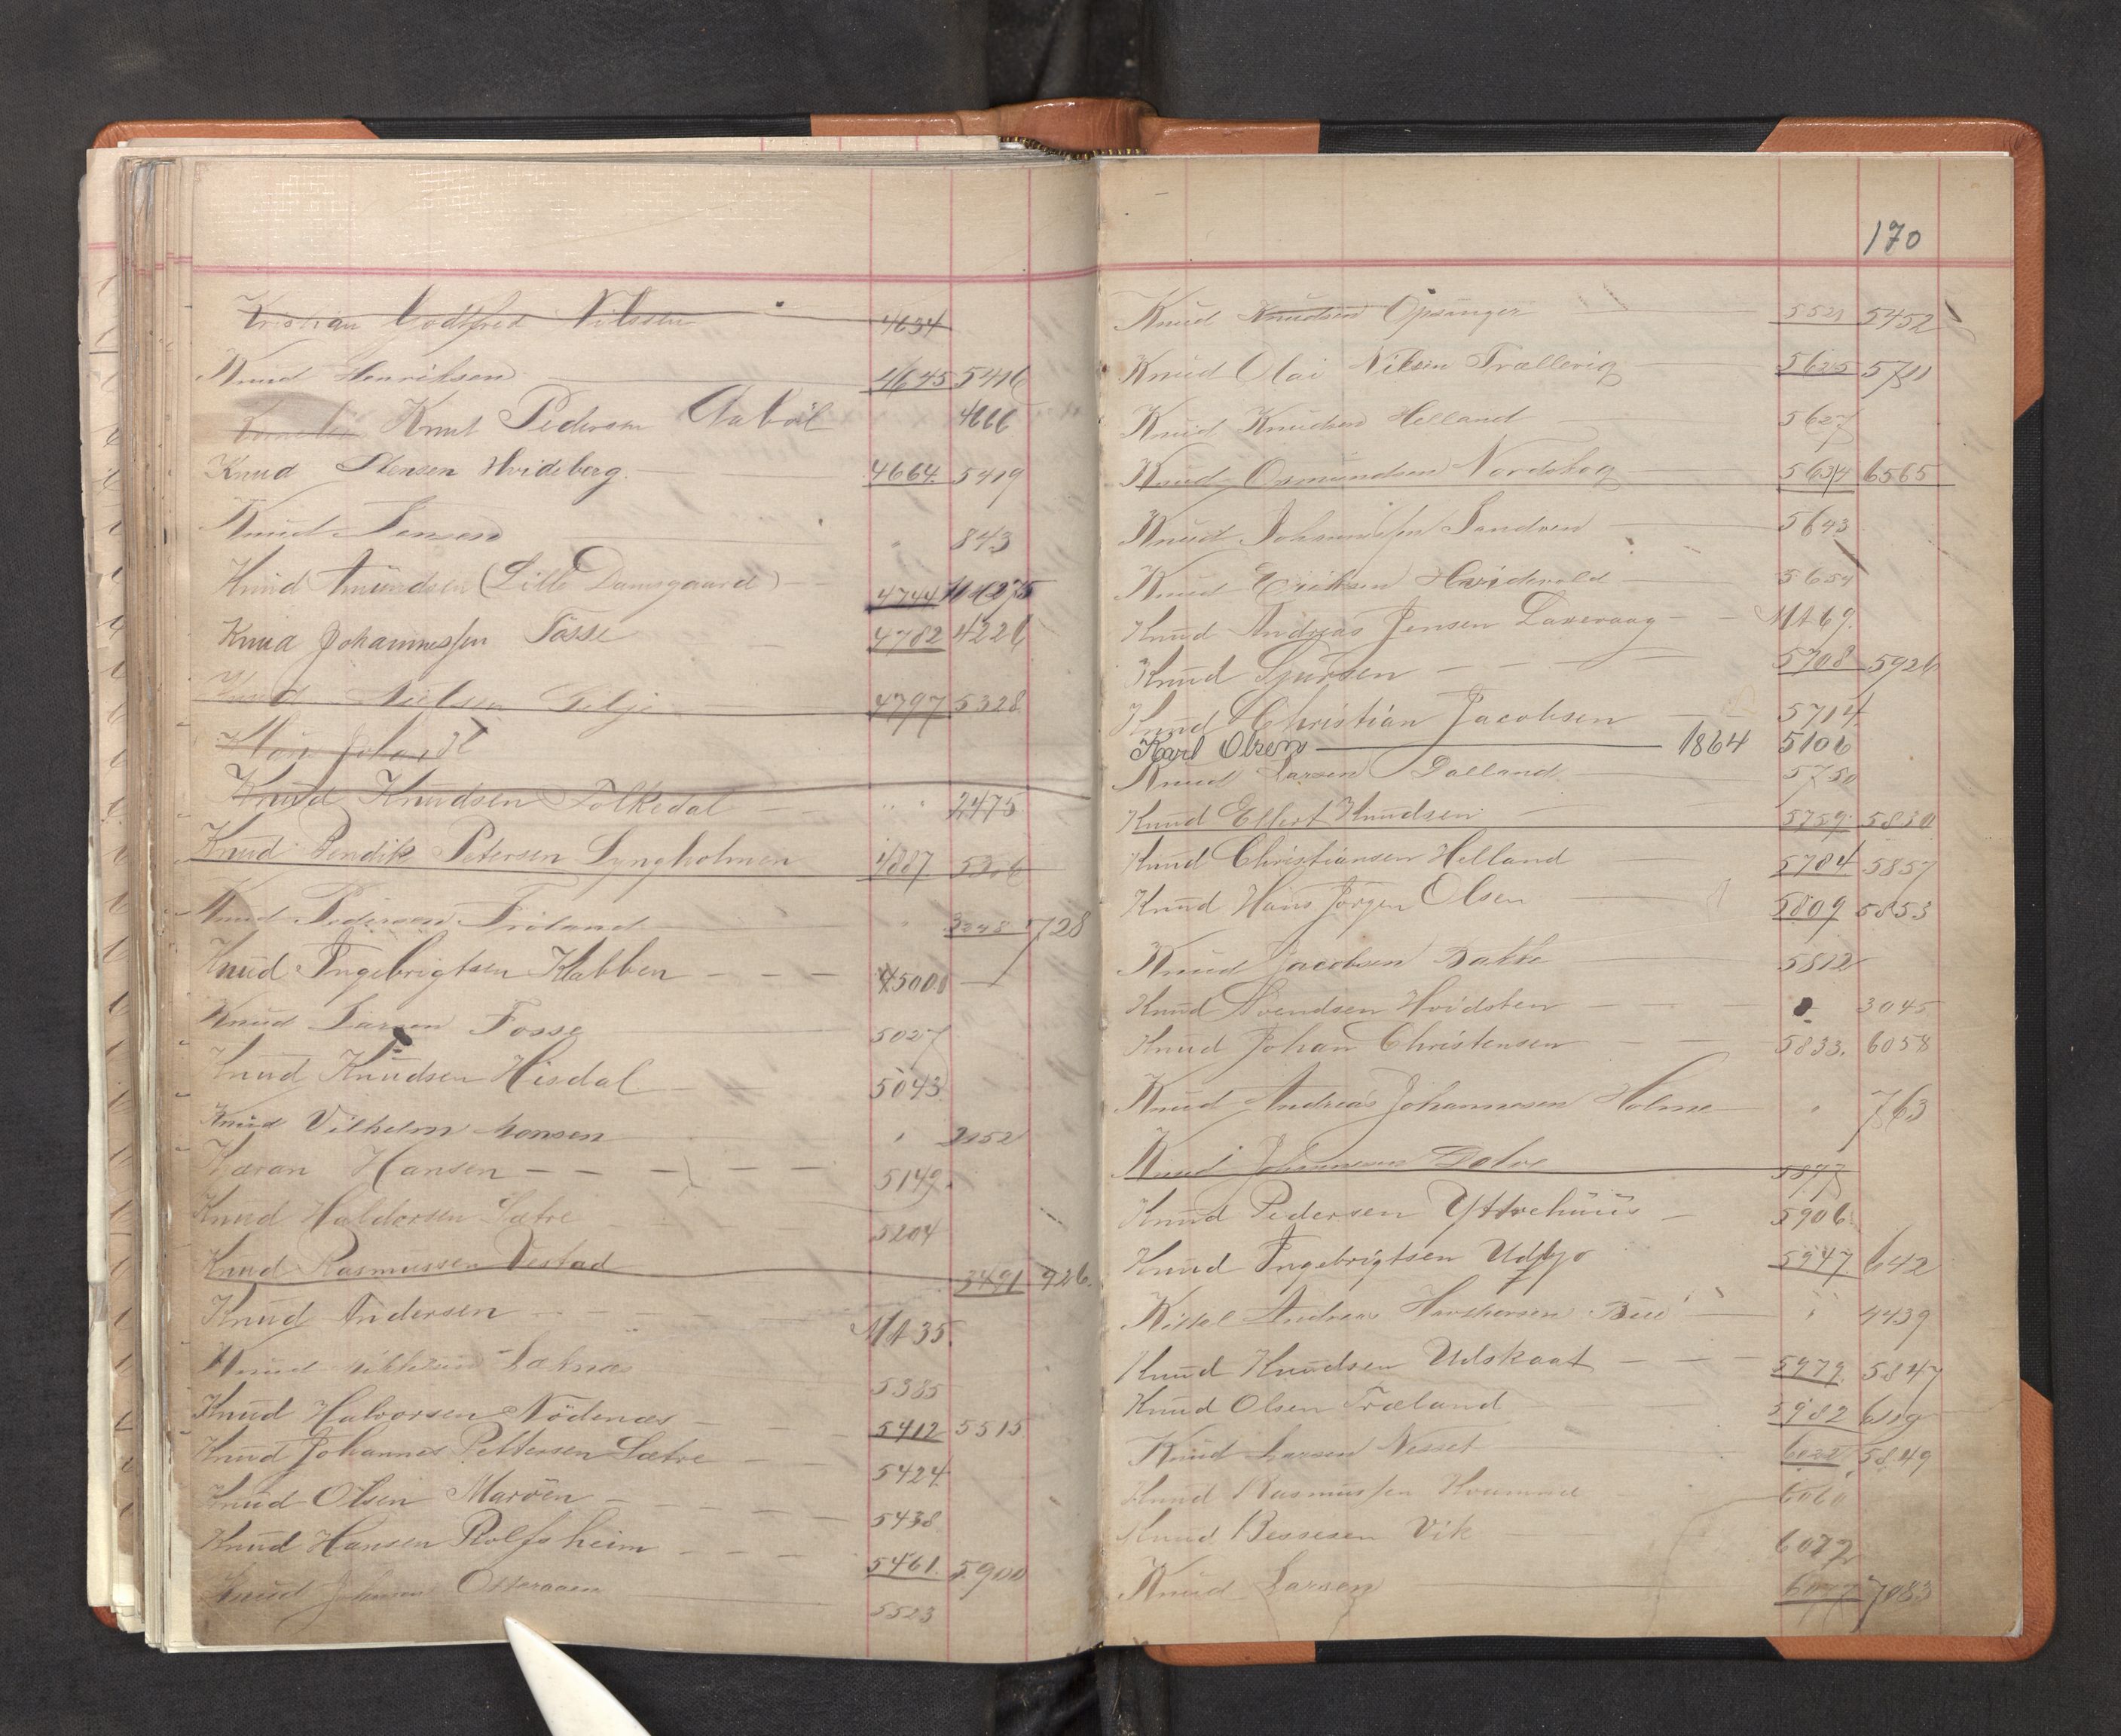 Kristian Godtfred Nilssen 4634
Knud Henriksen 4645 5416
Knut Pedersen Aaböl 4666
Knud Stensen Hvideberg 4664 5419
Knud Jensen 843
Knud Amundsen (Lille Damsgaard) 4744
Knud Johannessen Fosse 4782 4226
Knud Nielsen Gilje 4797 5328
Knud Knudsen Folkedal 2475
Knud Bendik Petersen Lyngholmen 4887 5306
Knud Pedersen 3248 5728
Knud Ingebrigtsen Klabben 4500
Knud Larsen Fosse 5027
Knud Knudsen Hisdal 5043
Knud Vilhelm Monsen 2152
Karan Hansen 5149
Knud Haldorsen Sætre 5204
Knud Rasmussen Vestad 3491 926
Knud Andersen MA 35
Knud 5385
Knud Halvorsen Nödenæs 5412 5515
Knud Johannes Pettersen Sætre 5424
Knud Olsen Maröen 5438
Knud Hansen Rolfsheim 5461 5900
Knud 5523
170
Knud Knudsen Opsanger 5521 5452
Knud Olai Nilsen Trællevig 5625 5711
Knud Knudsen Helland 5627
Knud Osmundsen Nordskog 5634 6565
Knud Johannessen Sandven 5643
Knud Eriksen Hvidevold 5654
Knud Andreas Jensen Laxevaag MA 69
Knud Sjursen 5708 5926
Knud Christian Jacobsen 5714
Karl Olsen 1864 5106
Knud Larsen Dalland 5750
Knud Ellert Knudsen 5759 5830
Knud Christiansen Helland 5784 5857
Knud Hans Jörgen Olsen 5809 5853
Knud Jacobsen Bakke 5812
Knud Svendsen Hvidsten 3045
Knud Johan Christensen 5833 6058
Knud Andreas Johannesen Holme 763
Knud Johannesen 5877
Knud Pedersen Yttrehuus 5906
Knud Ingebrigtsen 5947 642
Kittel Andreas 4439
Knud Knudsen Udskaat 5979 5847
Knud Olsen Træland 5982 619
Knud Larsen Nesset 6022 5849
Knud Rasmussen Kvamme 6060
Knud Bessesen Vik 6072
Knud Larsen 6077 7083